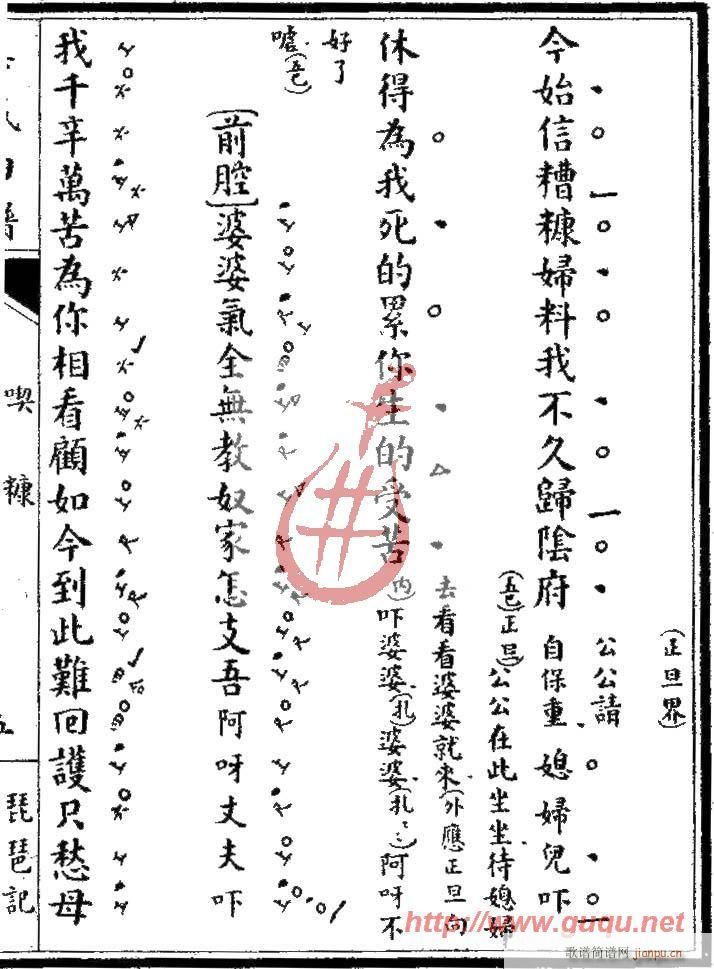 (正旦界)
公公請
今始信糟糠婦料我不久歸陰府 自保重 媳婦兒吓
公公在此坐坐待媳婦
去看看婆婆就來(外應正旦向
休得為我死的累你生的受苦(内)吓婆婆(扎)婆婆(扎、三)阿呀不
好了
噓
(前腔)婆婆氣全無教奴家怎支吾阿呀丈夫吓
我千辛萬苦為你相看顧如今到此難回護只愁母
喫糠
琵琶記
http://www.guqu.net
歌谱简谱网 jianpu.cn